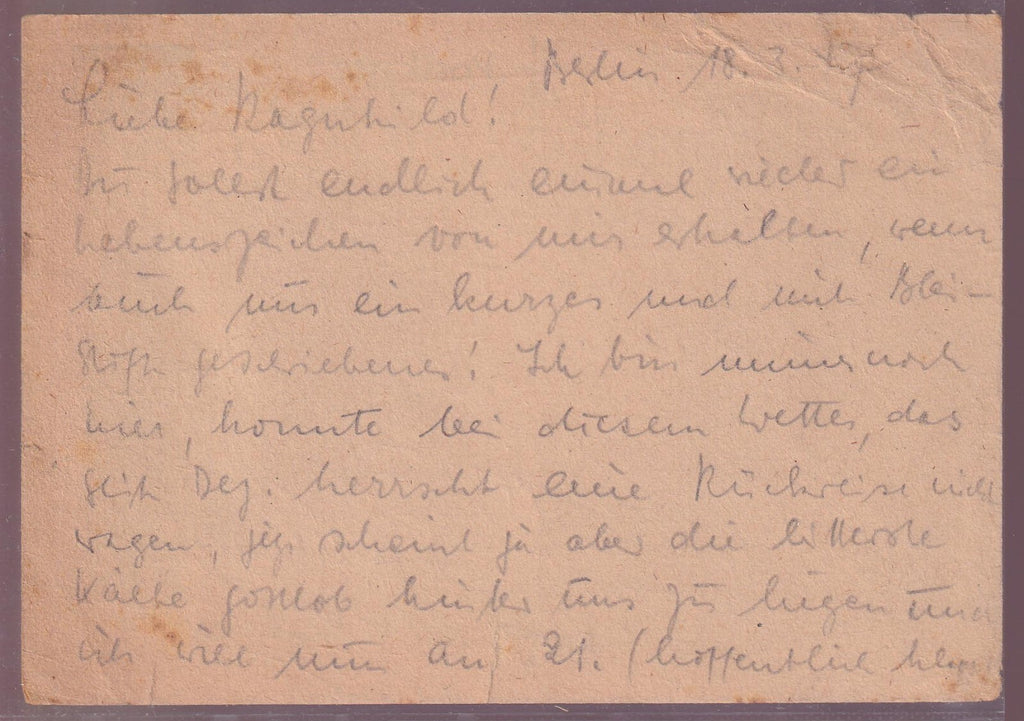 Berlin 18. 3. 47
Liebe Ragnhild!
Du sollst endlich einmal wieder ein
Lebenszeichen von mir erhalten, wenn
auch nur ein kurzes und mit Blei-
stift geschriebenes! Ich bin immer noch
hier, konnte bei diesem Wetter, das
seit Dez. herrscht eine Rückreise nicht
wagen, jetzt scheint ja aber die bitterste
Kälte gottlob hinter uns zu liegen und
ich will nun am 21. (hoffentlich klappt